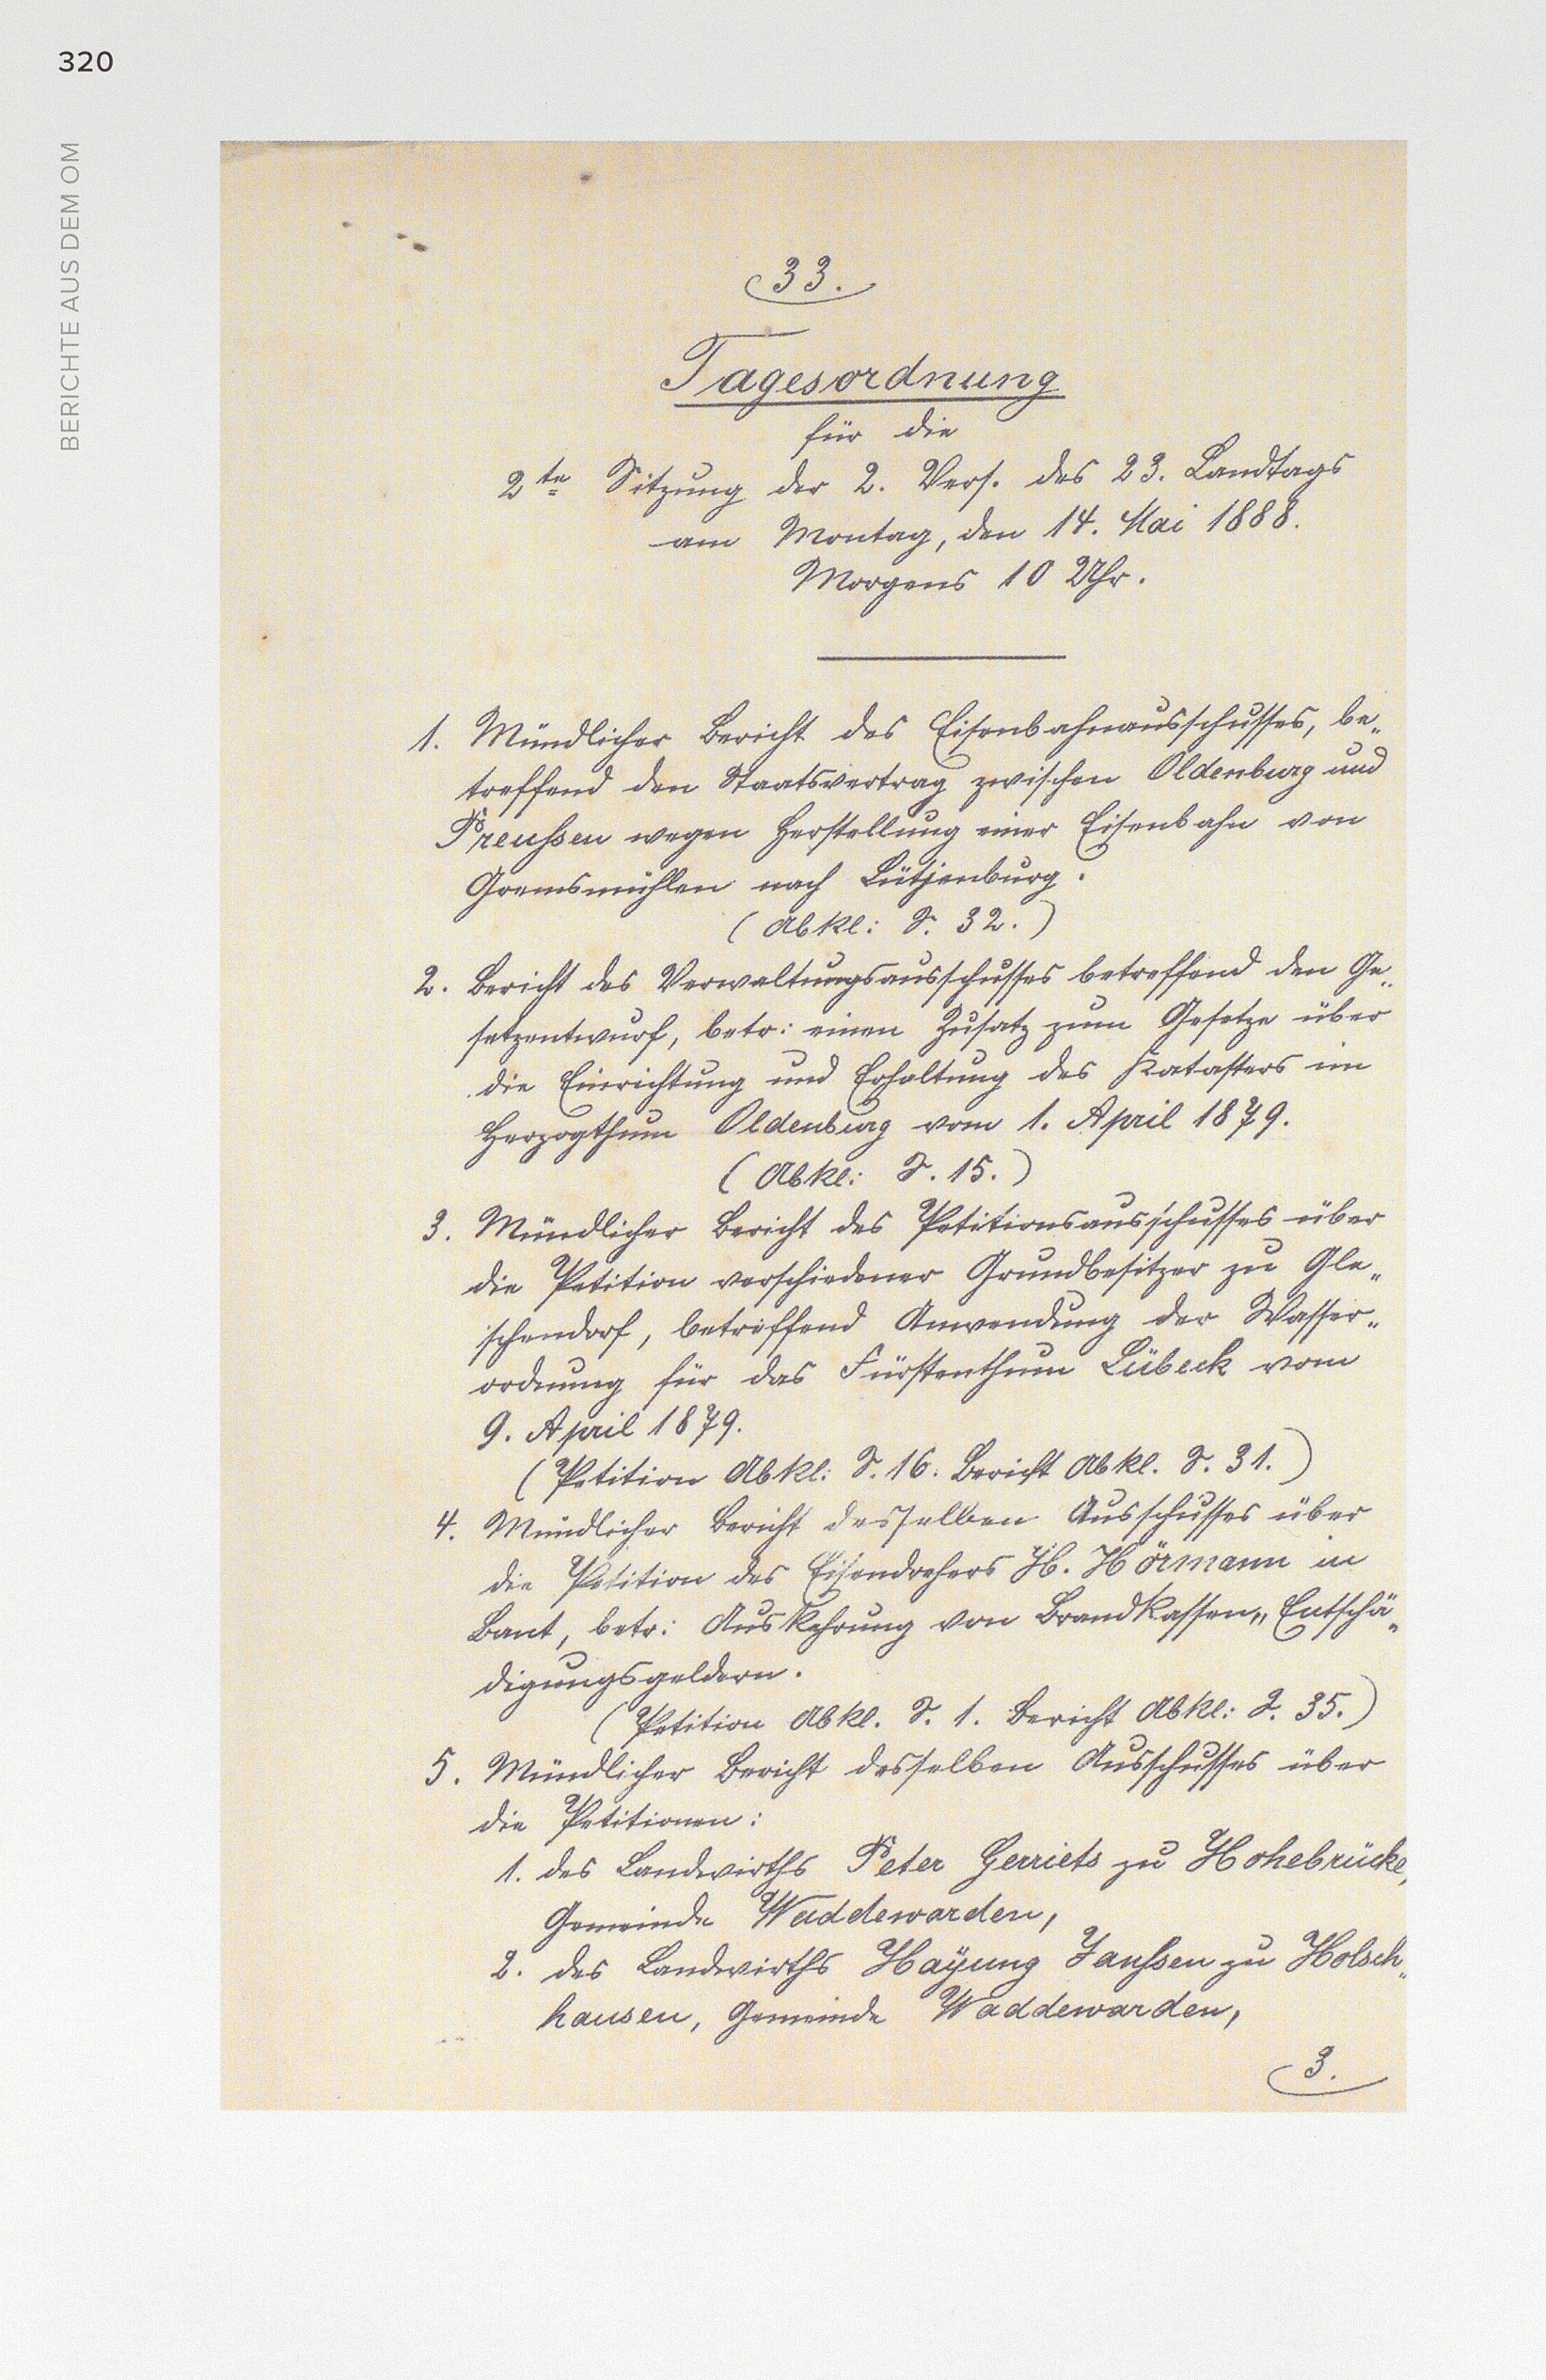 320
BERICHTE AUS DEM OM
33.
Tagesordnung
für die
2te Sitzung der 2. Vers. des 23. Landtags
am Montag, den 14. Mai 1888.
Morgens 10 Uhr.
1. Mündlicher Bericht des Eisenbahnausschusses, be„
treffend den Staatsvertrag zwischen Oldenburg und
Preußen wegen Herstellung einer Eisenbahn von
Gremsmühlen nach Lütjenburg.
(Abkl: S. 32.)
2. Bericht des Verwaltungsausschusses betreffend den Ge„
setzentwurf, betr: einen Zusatz zum Gesetze über
die Einrichtung und Erhaltung des Katasters im
Herzogthum Oldenburg vom 1. April 1879.
(Abkl: S. 15.)
3. Mündlicher Bericht des Petitionsausschusses über
die Petition verschiedener Grundbesitzer zu Gle„
schendorf, betreffend Anwendung der Wasser„
ordnung für das Fürstenthum Lübeck vom
9. April 1879.
(Petition Abkl: S. 16. Bericht Abkl. S. 31.)
4. Mündlicher Bericht desselben Ausschusses über
die Petition des Eisendrehers H. Hörmann in
Bant, betr: Auskehrung von Brandkassen„ Entschä„
digungsgeldern.
(Petition Abkl. S. 1. Bericht Abkl: S. 35.)
5. Mündlicher Bericht desselben Ausschusses über
die Petitionen:
1. des Landwirths Peter Gerriets zu Hohebrücke,
Gemeinde Waddewarden,
2. des Landwirths Hayung Janßen zu Holsch„
hausen, Gemeinde Waddewarden,
3.